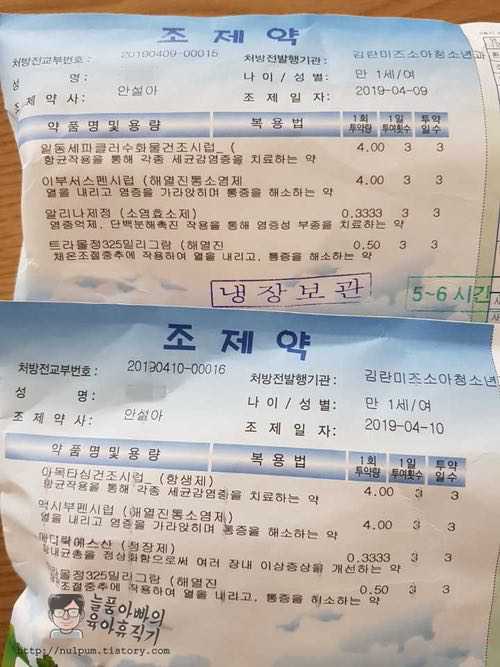 조 제 약
처방전교부번호 : 20190409-00015 처방전발행기관 : 김란미즈소아청소년과
성 명 : 나 이 / 성 별 : 만 1세/여
조 제 약 사 : 안설아 조 제 일 자 : 2019-04-09
약 품 명 및 용 량 복 용 법 1회 투약량 1일 투여횟수 투약 일수
일동세파클러수화물건조시럽_ ( 4.00 3 3
항균작용을 통해 각종 세균감염증을 치료하는 약
이부서스펜시럽 (해열진통소염제 4.00 3 3
열을 내리고 염증을 가라앉히며 통증을 해소하는 약
알리나제정 (소염효소제) 0.3333 3 3
염증억제, 단백분해촉진 작용을 통해 염증성 부종을 치료하는 약
트라몰정325밀리그람 (해열진 0.50 3 3
체온조절중추에 작용하여 열을 내리고, 통증을 해소하는 약
냉장보관 5~6 시간
조 제 약
처방전교부번호 : 20190410-00016 처방전발행기관 : 김란미즈소아청소년
성 명 : 나 이 / 성 별 : 만 1세/여
조 제 약 사 : 안설아 조 제 일 자 : 2019-04-10
약 품 명 및 용 량 복 용 법 1회 투약량 1일 투여횟수 투약 일수
아목타심건조시럽_ (항생제) 4.00 3 3
항균작용을 통해 각종 세균감염증을 치료하는 약
맥시부펜시럽 (해열진통소염제) 4.00 3 3
열을 내리고 염증을 가라앉히며, 통증을 해소하는 약
메디락에스산 (정장제) 0.3333 3 3
장내균총을 정상화함으로써 여러 장내 이상증상을 개선하는 약
라몰정325밀리그람 (해열진 0.50 3 3
조절중추에 작용하여 열을 내리고, 통증을 해소하는 약
늘품아빠의
육아휴직기
http://nulpum.tistory.com